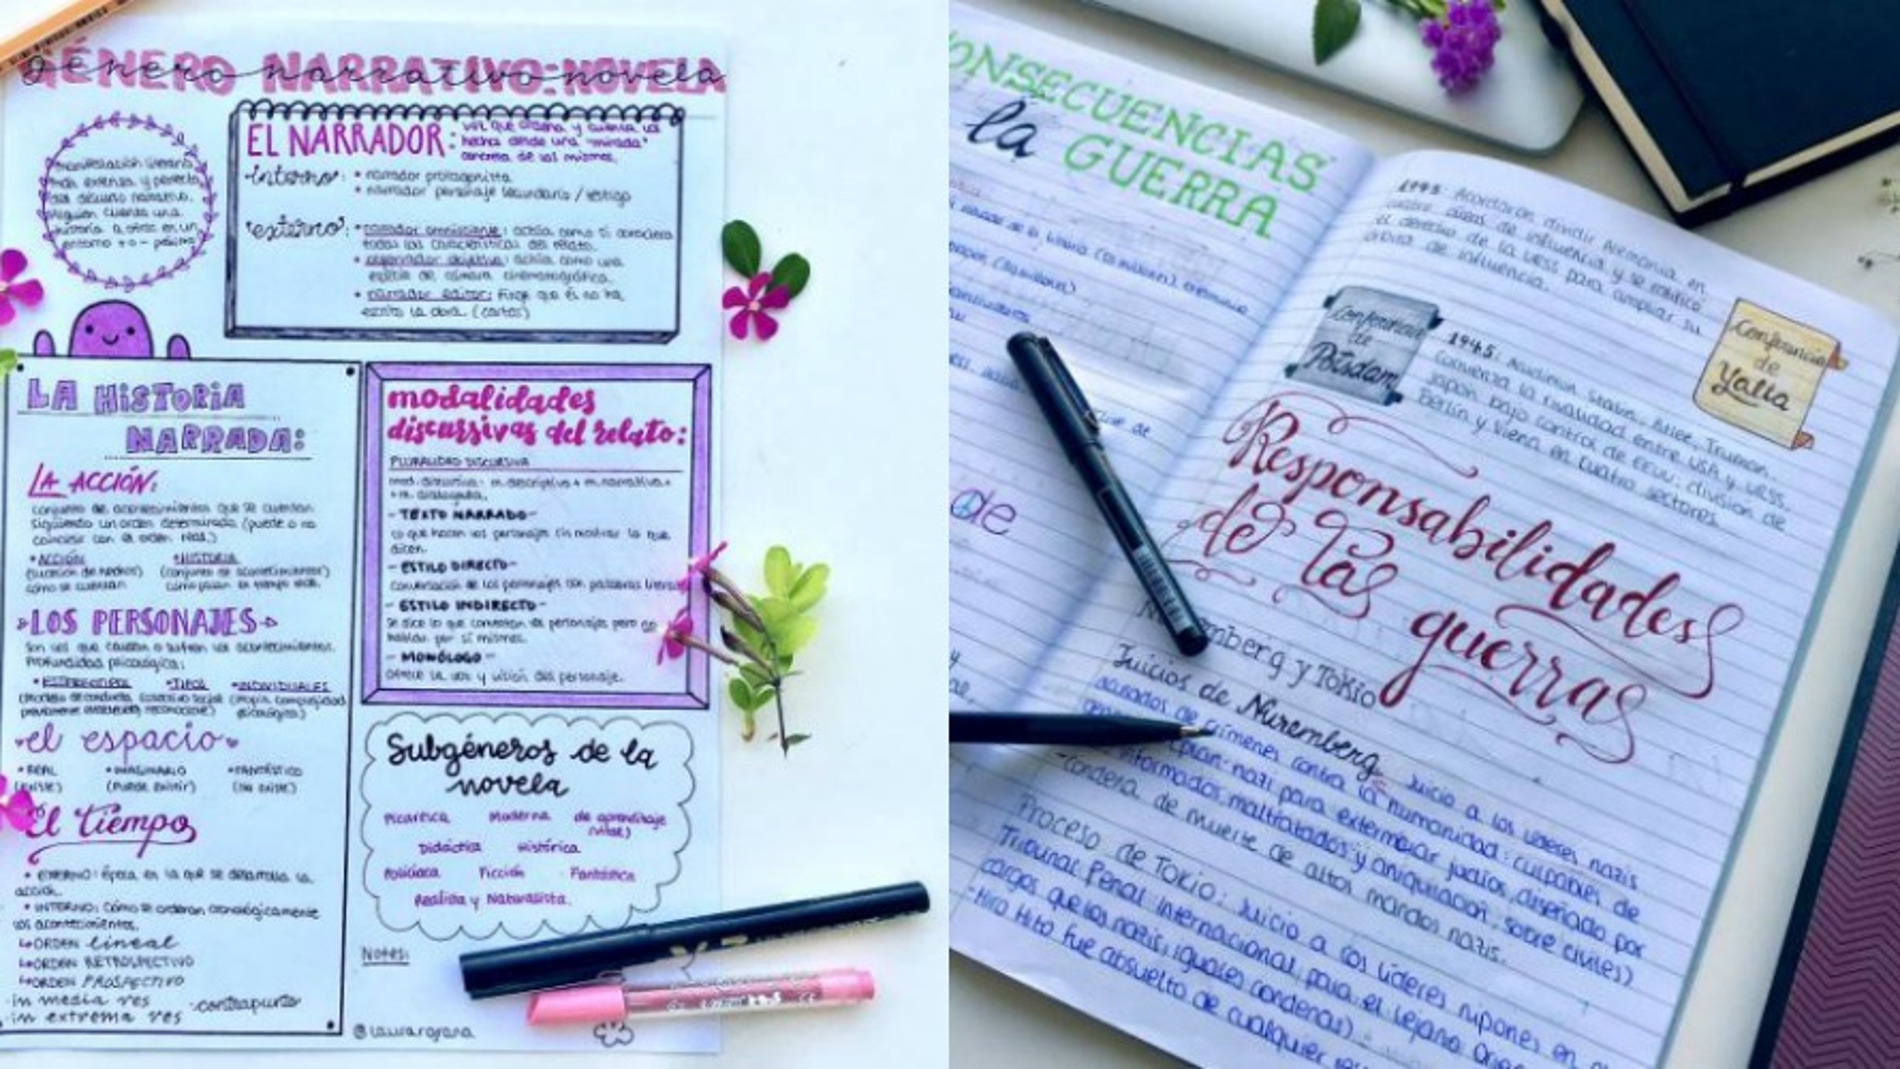 GÉNERO NARRATIVO: NOVELA
género narrativo: novela
manifestación literaria
más extensa y perfecta
del discurso narrativo.
alguien cuenta una
historia a otros en un
entorno +o- próximo
EL NARRADOR: voz que ordena y cuenta los
hechos desde una "mirada"
concreta de los mismos.
interno: • narrador protagonista
• narrador personaje secundario / testigo
externo: • narrador omnisciente: actúa como si conociera
todas las características del relato.
objetivo: actúa como una
especie de cámara cinematográfica.
• narrador editor: finge que él no ha
escrito la obra. (cartas)
LA HISTORIA
NARRADA:
LA ACCIÓN:
conjunto de acontecimientos que se cuentan
siguiendo un orden determinado (puede o no
coincidir con el orden real)
• ACCIÓN • HISTORIA
(sucesión de hechos) (conjunto de acontecimientos)
cómo se cuentan como pasan en tiempo real.
LOS PERSONAJES
Son los que causan o sufren los acontecimientos.
Profundidad psicológica:
• ESTEREOTIPOS • TIPOS • INDIVIDUALES
(modelo de conducta (colectivo social (propia complejidad
reconocible) psicológica)
el espacio
• REAL • IMAGINARIO • FANTÁSTICO
(existe) (puede existir) (no existe)
El tiempo
• EXTERNO: época en la que se desarrolla la
acción.
• INTERNO: cómo se ordenan cronológicamente
los acontecimientos.
↳ORDEN lineal
↳ORDEN RETROSPECTIVO
↳ORDEN PROSPECTIVO
·in media res ·contrapunto
·in extrema res
modalidades
discursivas del relato:
PLURALIDAD DISCURSIVA
mod. discursiva: m. descriptiva + m. narrativa +
+ m. dialogada.
- TEXTO NARRADO -
lo que hacen los personajes sin mostrar lo que
dicen.
- ESTILO DIRECTO -
conversación de los personajes con palabras literales
- ESTILO INDIRECTO -
Se dice lo que comentan los personajes pero no
hablan por sí mismos.
- MONÓLOGO -
ofrece la voz y visión del personaje.
Subgéneros de la
novela
Picaresca Moderna de aprendizaje
Didáctica Histórica
Policíaca Ficción Fantástica
Realista y Naturalista.
Notes:
@laurarojana
ONSECUENCIAS
la GUERRA
de
1945: Acordaron dividir Alemania en
cuatro zonas de influencia y se ratificó
el derecho de la URSS para ampliar su
órbita de influencia.
Conferencia
de
Yalta
Conferencia
de
Potsdam
1945: Acudieron Stalin, Attlee, Truman.
Comienza la rivalidad entre USA y URSS.
Japón bajo control de EEUU; división de
Berlín y Viena en cuatro sectores.
Responsabilidades
de las guerras
Nuremberg y Tokio
Juicios de Nuremberg: Juicio a los líderes nazis
acusados de crímenes contra la humanidad: culpables de
plan nazi para exterminar judíos, diseñado por
uniformados, maltratados y aniquilación sobre civiles)
-Condena de muerte de altos mandos nazis.
Proceso de Tokio: Juicio a los líderes nipones en
Tribunal Penal Internacional para el Lejano Oriente
cargos que los nazis, iguales condenas)
-Hiro Hito fue absuelto de cualquier